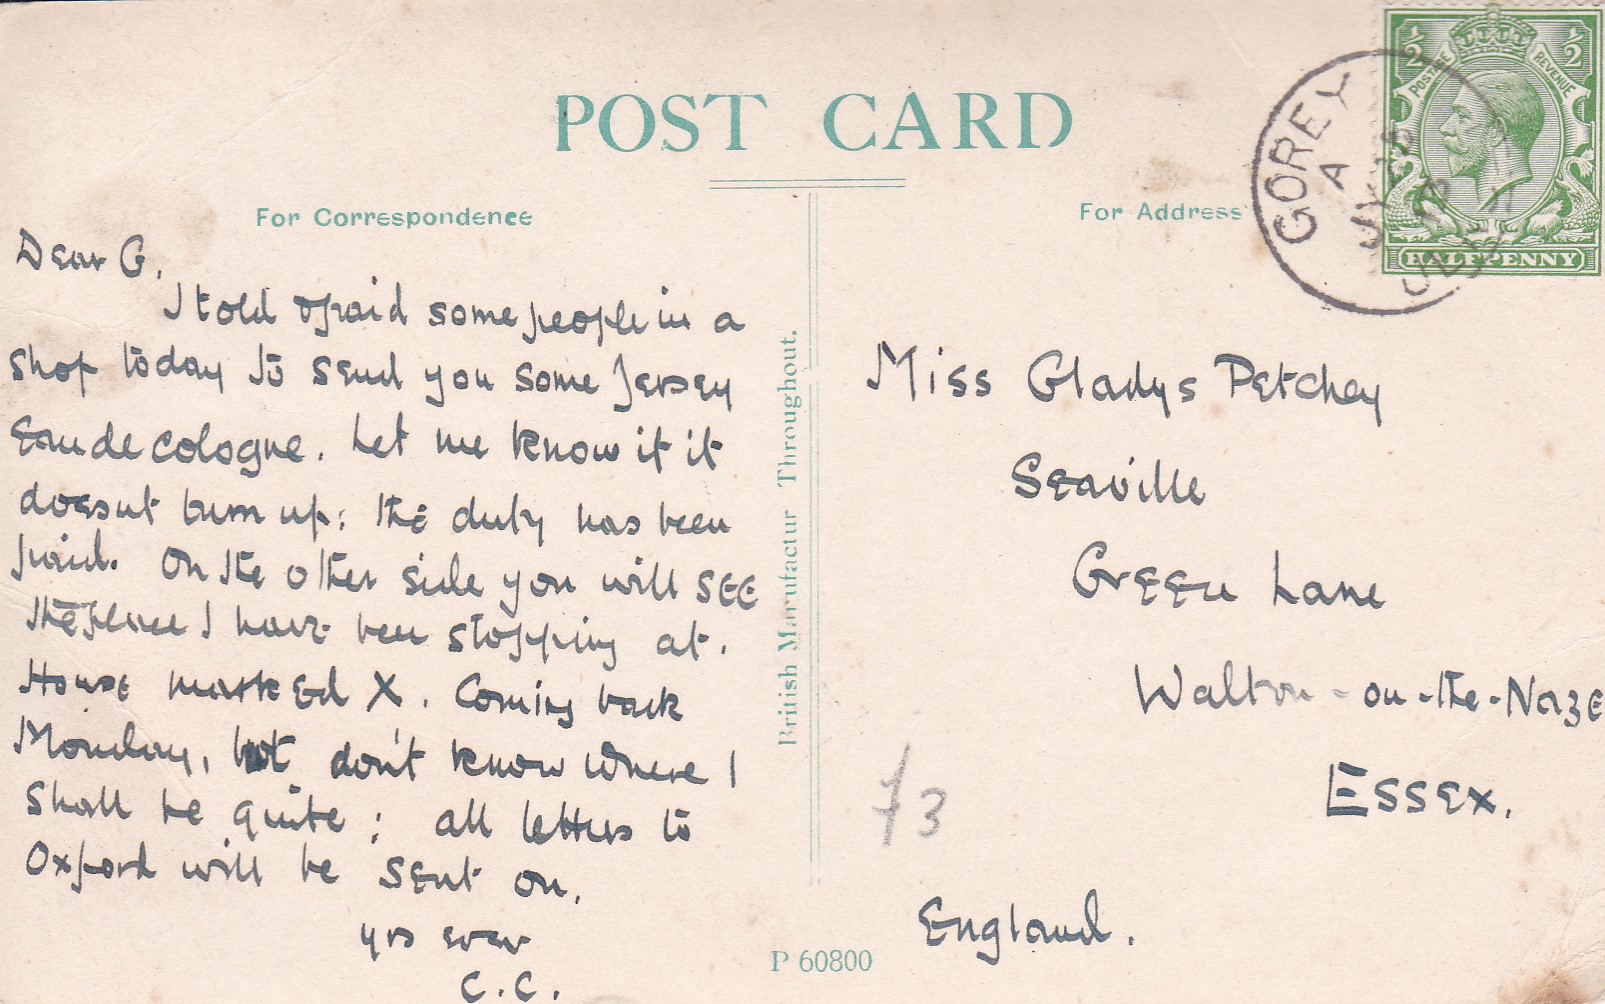 POST CARD
For Correspondence
For Address
½ ½
POSTAGE REVENUE
HALFPENNY
GOREY
A
JERSEY
Dear G.
I told some people in a
shop today to send you some Jersey
Eau de cologne. Let me know if it
doesnt turn up: the duty has been
paid. On the other side you will SEE
the place I have been stopping at.
House marked X. Coming back
Monday, but don't know where I
shall be quite; all letters to
Oxford will be sent on.
yrs ever
C.C.
British Manufactur Throughout.
Miss Gladys Petchey
Seaville
Green Lane
Walton-on-the-Naze
ESSEX.
England.
P 60800